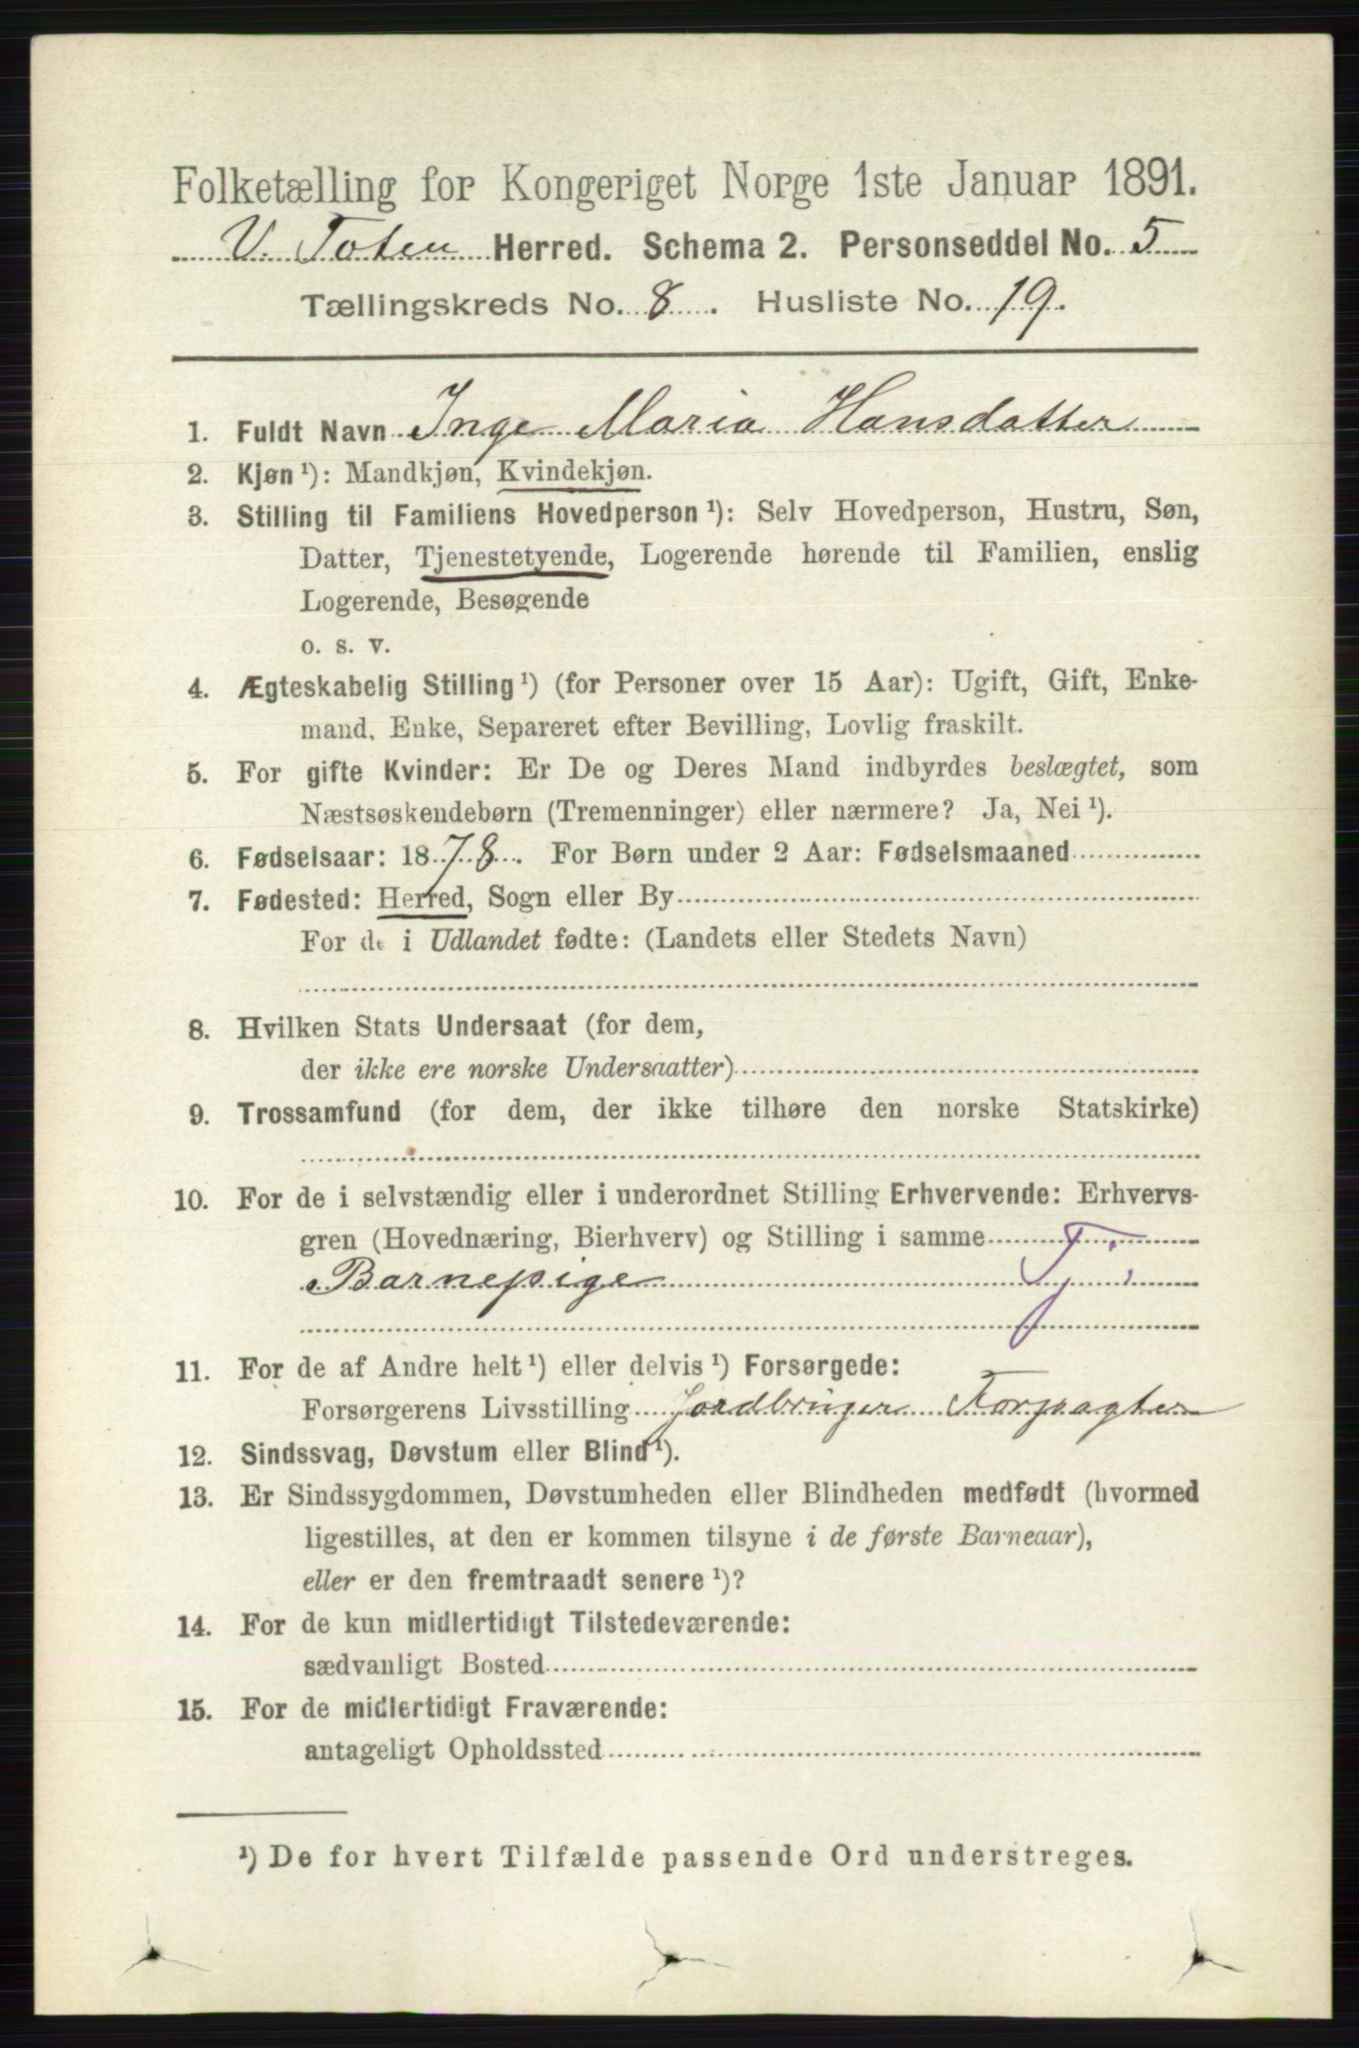 Folketælling for Kongeriget Norge 1ste Januar 1891.
V. Toten Herred. Schema 2. Personseddel No. 5
Tællingskreds No. 8. Husliste No. 19.
1. Fuldt Navn Inge Maria Hansdatter
2. Kjøn ¹): Mandkjøn, Kvindekjøn.
3. Stilling til Familiens Hovedperson ¹): Selv Hovedperson, Hustru, Søn,
Datter, Tjenestetyende, Logerende hørende til Familien, enslig
Logerende, Besøgende
o. s. v.
4. Ægteskabelig Stilling ¹) (for Personer over 15 Aar): Ugift, Gift, Enke-
mand, Enke, Separeret efter Bevilling, Lovlig fraskilt.
5. For gifte Kvinder: Er De og Deres Mand indbyrdes beslægtet, som
Næstsøskendebørn (Tremenninger) eller nærmere? Ja, Nei ¹).
6. Fødselsaar: 1878. For Børn under 2 Aar: Fødselsmaaned
7. Fødested: Herred, Sogn eller By
For de i Udlandet fødte: (Landets eller Stedets Navn)
8. Hvilken Stats Undersaat (for dem,
der ikke ere norske Undersaatter)
9. Trossamfund (for dem, der ikke tilhøre den norske Statskirke)
10. For de i selvstændig eller i underordnet Stilling Erhvervende: Erhvervs-
gren (Hovednæring, Bierhverv) og Stilling i samme
Barnepige Tj.
11. For de af Andre helt ¹) eller delvis ¹) Forsørgede:
Forsørgerens Livsstilling Jordbruger Forpagter
12. Sindssvag, Døvstum eller Blind ¹).
13. Er Sindssygdommen, Døvstumheden eller Blindheden medfødt (hvormed
ligestilles, at den er kommen tilsyne i de første Barneaar),
eller er den fremtraadt senere ¹)?
14. For de kun midlertidigt Tilstedeværende:
sædvanligt Bosted
15. For de midlertidigt Fraværende:
antageligt Opholdssted
¹) De for hvert Tilfælde passende Ord understreges.